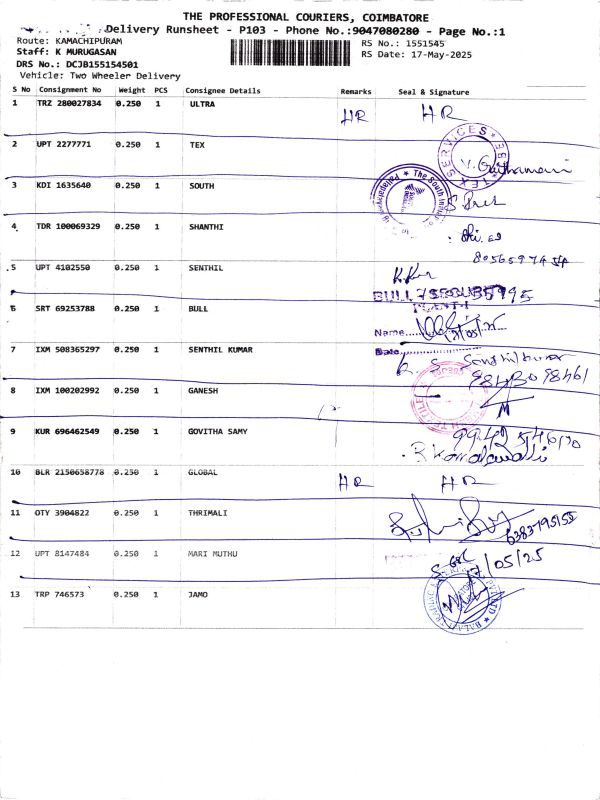 THE PROFESSIONAL COURIERS, COIMBATORE
Delivery Runsheet - P103 - Phone No.:9047080280 - Page No.:1
Route: KAMACHIPURAM
RS No.: 1551545
Staff: K MURUGASAN
RS Date: 17-May-2025
DRS No.: DCJB155154501
Vehicle: Two Wheeler Delivery
S No Consignment No Weight PCS Consignee Details Remarks Seal & Signature
1 TRZ 280027834 0.250 1 ULTRA HR HR
2 UPT 2277771 0.250 1 TEX
TEX SERVICES
3 KDI 1635640 0.250 1 SOUTH
The South
4 TDR 100069329 0.250 1 SHANTHI
8056597454
5 UPT 4102550 0.250 1 SENTHIL
6 SRT 69253788 0.250 1 BULL
BULL
Name
Date
7 IXM 508365297 0.250 1 SENTHIL KUMAR
9843098461
8 IXM 100202992 0.250 1 GANESH
9 KUR 696462549 0.250 1 GOVITHA SAMY
10 BLR 2150658778 0.250 1 GLOBAL HR HR
11 OTY 3904822 0.250 1 THRIMALI
6383795155
12 UPT 8147484 0.250 1 MARI MUTHU
17/05/25
13 TRP 746573 0.250 1 JAMO